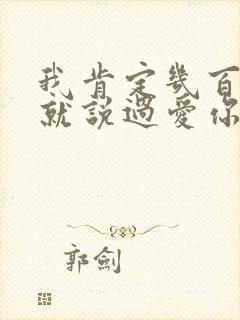 我肯定幾百
就說過愛你
郭劍